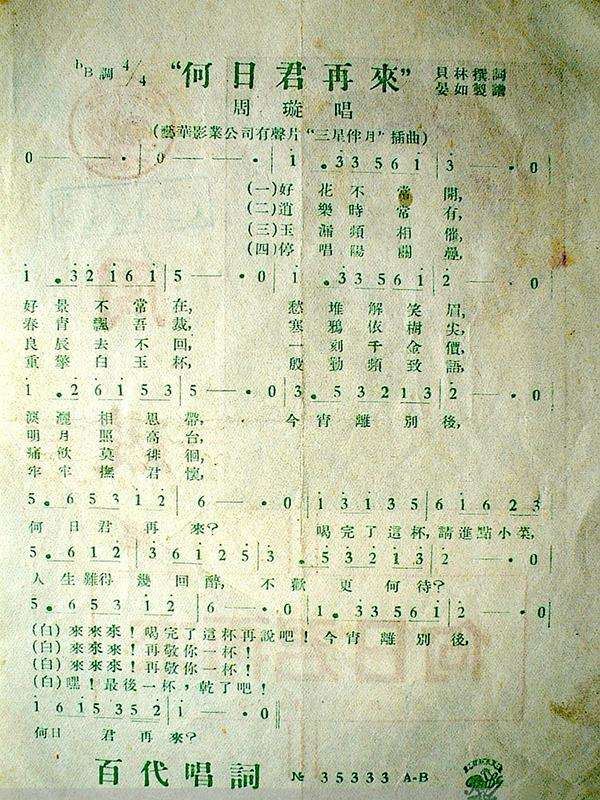 bB調 4/4 “何日君再來” 貝林撰詞
晏如製譜
周璇唱
(藝華影業公司有聲片“三星伴月”插曲)
0 — · 0 — · 0 1 . 3 3 5 6 1 3 — · 0
(一)好花不常開,
(二)道樂時常有,
(三)玉漏頻相催,
(四)停唱陽關疊,
1 . 3 2 1 6 1 5 — · 0 1 . 3 3 5 6 1 2 — · 0
好景不常在, 愁堆解笑眉,
春青飄吾裁, 寒鴉依樹尖,
良辰去不回, 一刻千金價,
重擎白玉杯, 殷勤頻致語,
1 . 2 6 1 5 3 5 — · 0 3 . 5 3 2 1 3 2 — · 0
淚灑相思帶, 今宵離別後,
明月照高台,
痛飲莫徘徊,
牢牢撫君懷,
5 . 6 5 3 1 2 6 — · 0 1 3 1 3 5 6 1 6 2 3
何日君再來? 喝完了這杯,請進點小菜,
5 . 6 1 2 3 6 1 2 5 3 . 5 3 2 1 3 2 — · 0
人生難得幾回醉, 不歡更何待?
5 . 6 5 3 1 2 6 — · 0 1 . 3 3 5 6 1 2 — · 0
(白)來來來!喝完了這杯再說吧!今宵離別後,
(白)來來來!再敬你一杯!
(白)來來來!再敬你一杯!
(白)嘿!最後一杯,乾了吧!
1 6 1 5 3 5 2 1 — · 0
何日君再來?
百代唱詞 № 35333 A-B